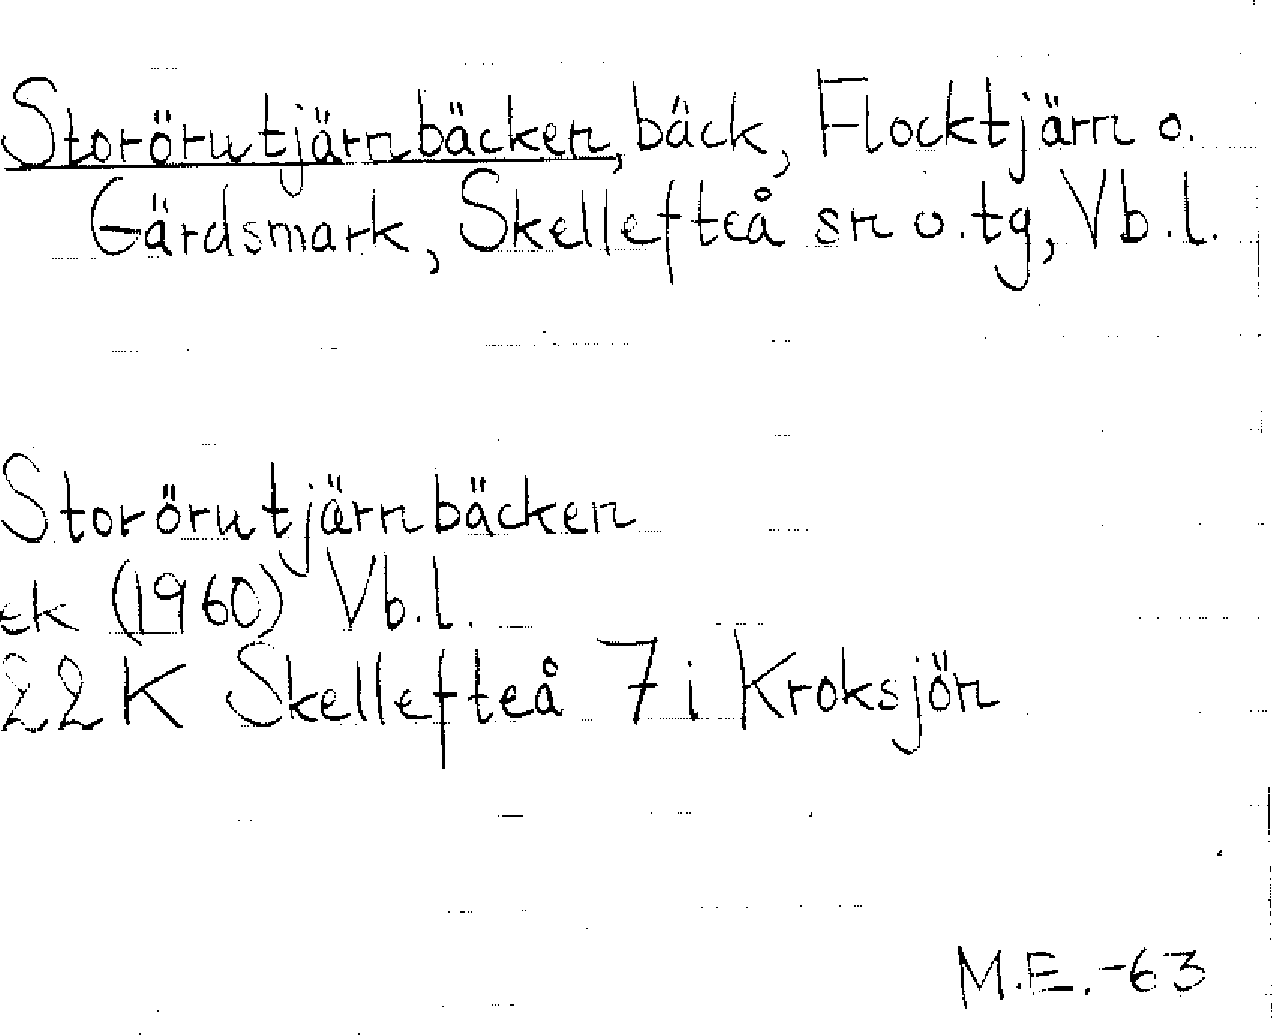 Storörutjärnbäcken, bäck, Flocktjärn o.
Gärdsmark, Skellefteå sn o. tg, Vb.l.
Storörutjärnbäcken
ek (1960) Vb.l.
22K Skellefteå 7i Kroksjön
M.E.-63